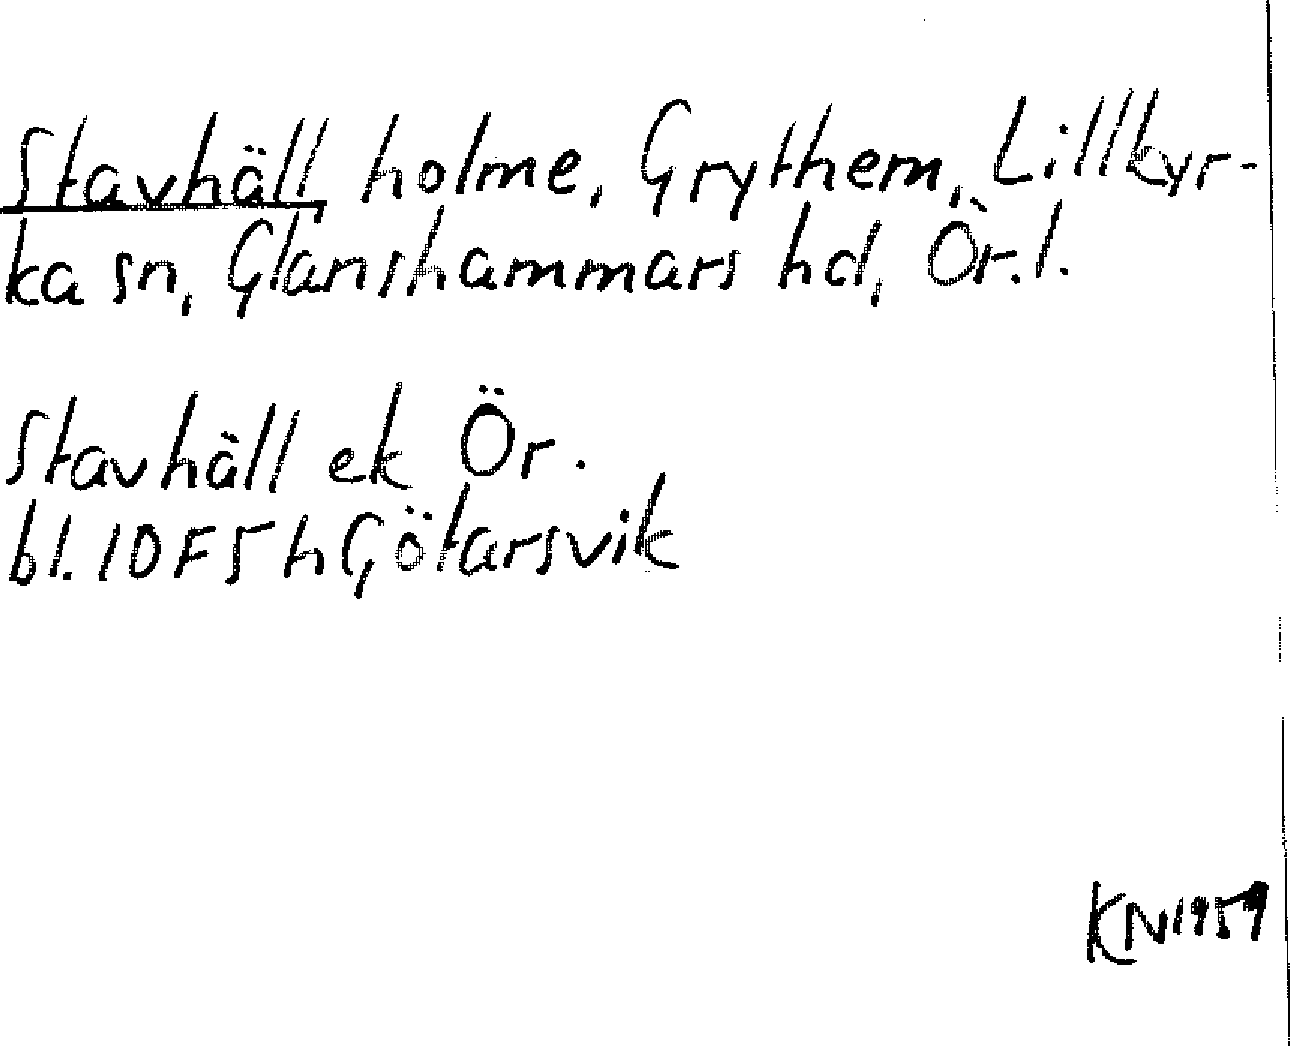 Stavhäll holme, Grythem, Lillkyr-
ka sn, Glanshammars hd, Ör. l.
Stavhäll ek Ör.
bl. 10F5h Götarsvik
KN 1959